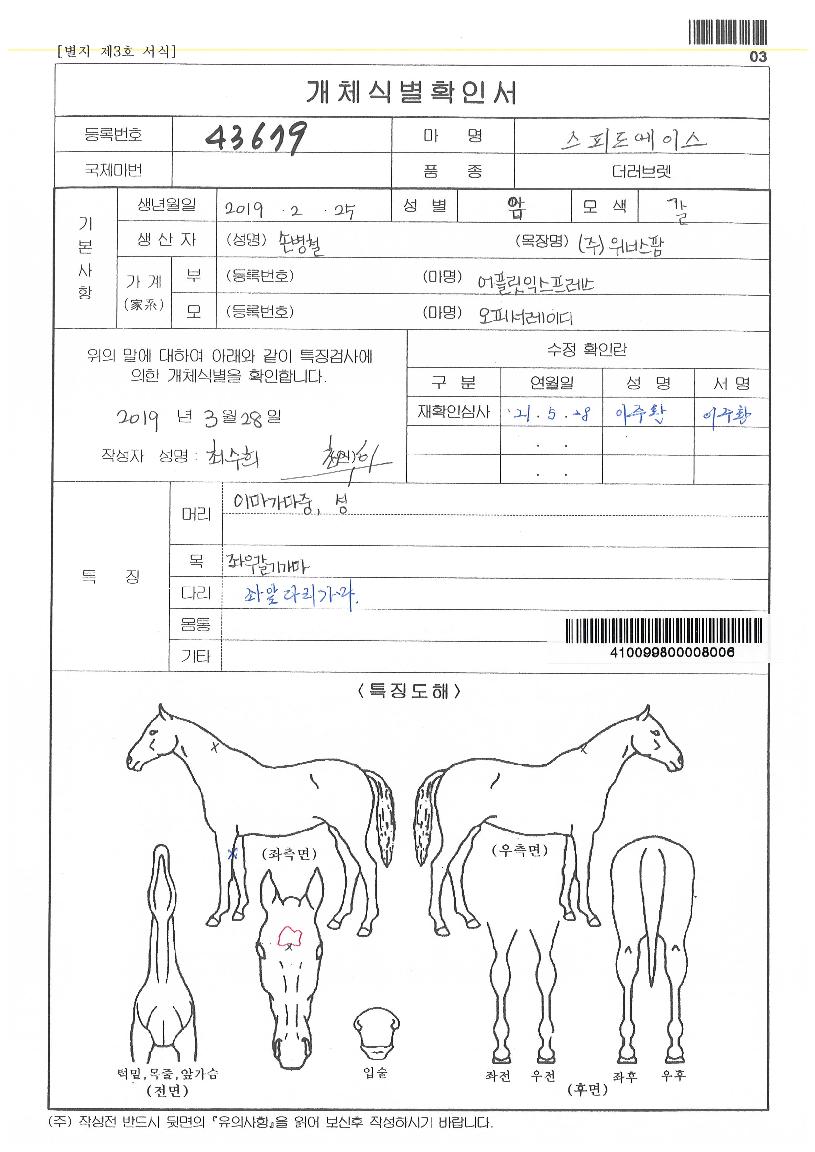 [별지 제3호 서식]
03
개체식별확인서
등록번호 43619 마 명 스피드에이스
국제마번 품 종 더러브렛
기본사항
생년월일 2019 . 2 . 25 성 별 암 모 색 갈
생산자 (성명) 손병철 (목장명) (주)위너스팜
가계 (家系) 부 (등록번호) (마명) 어플릿익스프레스
모 (등록번호) (마명) 오피서레이디
위의 말에 대하여 아래와 같이 특징검사에
의한 개체식별을 확인합니다.
2019 년 3월 28일
작성자 성명 : 최수희
수정 확인란
구 분 연월일 성 명 서 명
재확인심사 '21 . 5 . 28 이주환 이주환
. .
. .
특 징
머리 이마가마중, 성
목 좌우갈기가마
다리 좌앞다리가마.
몸통
기타
410099800008006
<특징도해>
(좌측면) (우측면)
턱밑,목줄,앞가슴
(전면)
입술
좌전 우전 좌후 우후
(후면)
(주) 작성전 반드시 뒷면의 『유의사항』을 읽어 보신후 작성하시기 바랍니다.